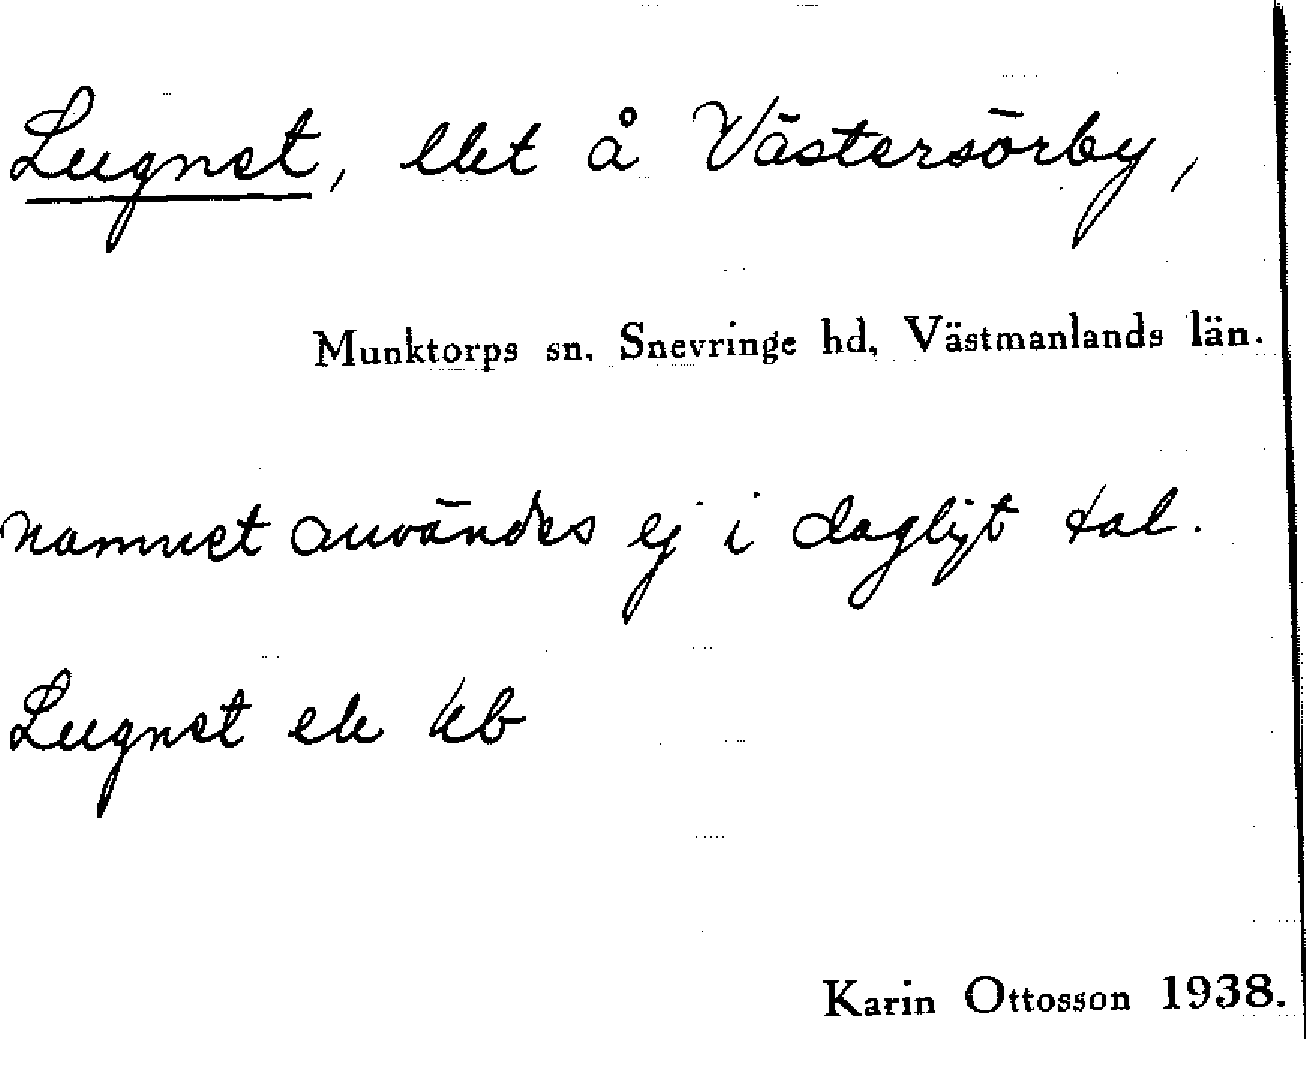 Lugnet, llet å Västersörby,
Munktorps sn. Snevringe hd, Västmanlands län.
namnet användes ej i dagligt tal.
Lugnet ek kb
Karin Ottosson 1938.